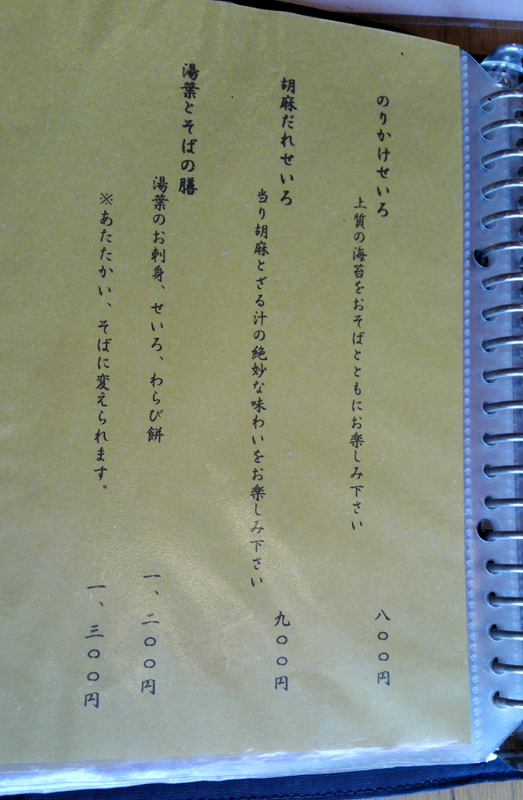 のりかけせいろ
上質の海苔をおそばとともにお楽しみ下さい
八〇〇円
胡麻だれせいろ
当り胡麻とざる汁の絶妙な味わいをお楽しみ下さい
九〇〇円
湯葉とそばの膳
湯葉のお刺身、せいろ、わらび餅
一、二〇〇円
※あたたかい、そばに変えられます。
一、三〇〇円